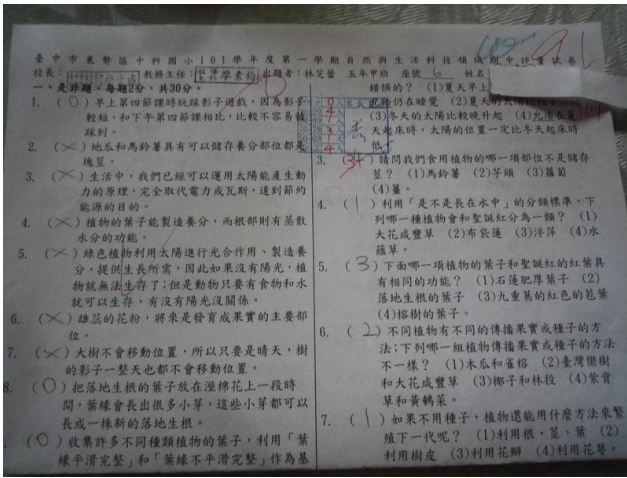 臺中市東勢區中科國小101學年度第一學期自然與生活科技領域期中評量試卷
校長: 教務主任: 出題者:林芝蕾 五年甲班 座號 6 姓名
91
一、是非題、每題2分,共30分。
1. (○)早上第四節課時玩踩影子遊戲,因為影子
較短,和下午第四節課相比,比較不容易被
踩到。
2. (×)地瓜和馬鈴薯具有可以儲存養分部位都是
塊莖。
3. (×)生活中,我們已經可以運用太陽能產生動
力的原理,完全取代電力或瓦斯,達到節約
能源的目的。
4. (×)植物的葉子能製造養分,而根部則有蒸散
水分的功能。
5. (×)綠色植物利用太陽進行光合作用、製造養
分,提供生長所需,因此如果沒有陽光,植
物就無法生存了;但是動物只要有食物和水
就可以生存,有沒有陽光沒關係。
6. (×)雄蕊的花粉,將來是發育成果實的主要部
位。
7. (×)大樹不會移動位置,所以只要是晴天,樹
的影子一整天也都不會移動位置。
8. (○)把落地生根的葉子放在溼棉花上一段時
間,葉緣會長出很多小芽,這些小芽都可以
長成一株新的落地生根。
(○)收集許多不同種類植物的葉子,利用「葉
緣平滑完整」和「葉緣不平滑完整」作為基
錯誤的? (1)夏天早上
仍在睡覺 (2)夏天的太陽比較早升起
(3)冬天的太陽比較晚升起 (4)
天起床時,太陽的位置一定比冬天起床時
低。
3. (3)請問我們食用植物的哪一項部位不是儲存
莖? (1)馬鈴薯 (2)芋頭 (3)蘿蔔
(4)薑。
4. (1)利用「是不是長在水中」的分類標準,下
列哪一種植物會和聖誕紅分為一類? (1)
大花咸豐草 (2)布袋蓮 (3)浮萍 (4)水
蘊草。
5. (3)下面哪一項植物的葉子和聖誕紅的紅葉具
有相同的功能? (1)石蓮肥厚葉子 (2)
落地生根的葉子 (3)九重葛的紅色的苞葉
(4)榕樹的葉子。
6. (2)不同植物有不同的傳播果實或種子的方
法;下列哪一組植物傳播果實或種子的方法
不一樣? (1)木瓜和雀榕 (2)臺灣欒樹
和大花咸豐草 (3)椰子和林投 (4)紫背
草和黃鵪菜。
7. (1)如果不用種子,植物還能用什麼方法來繁
殖下一代呢? (1)利用根、莖、葉 (2)
利用樹皮 (3)利用花瓣 (4)利用花萼。